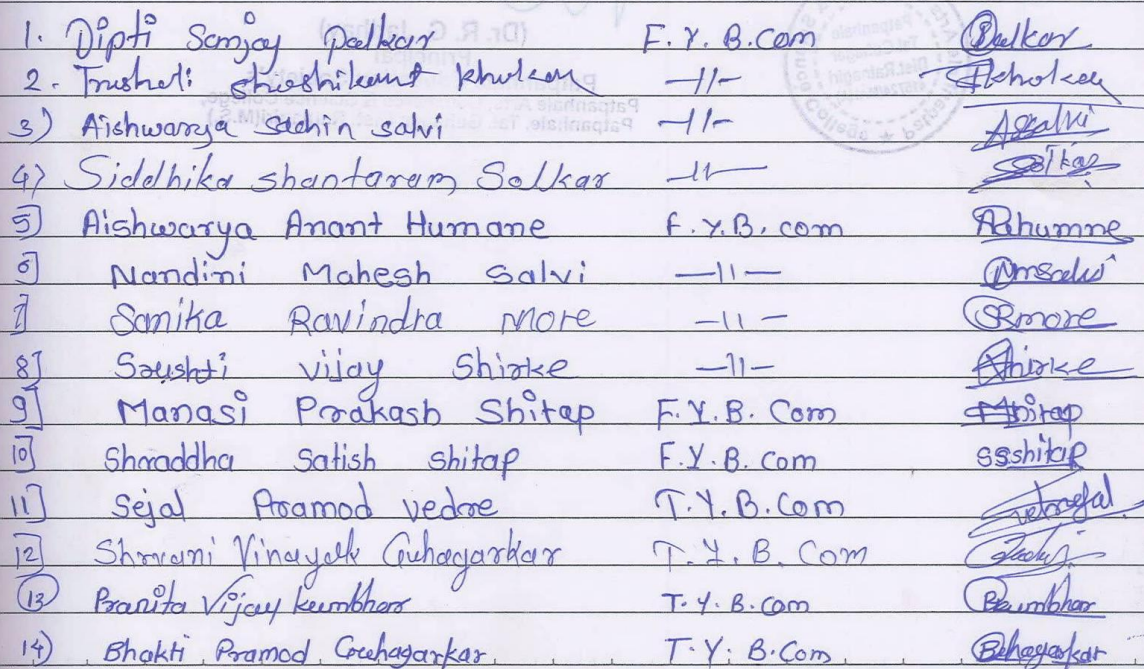 1. Dipti Sanjay Palkar F.Y.B.com Palkar
2. Trushali Shashikant Khokar —11— Skhokar
3) Aishwarya Sachin salvi —11— ASsalvi
4) Siddhika Shantaram Solkar —11— SSolkar
5] Aishwarya Anant Humane F.Y.B.com AAhumne
6] Nandini Mahesh Salvi —11— Nmsalvi
7] Sanika Ravindra More —11— SRmore
8] Srushti vijay Shirke —11— Shirke
9] Manasi Prakash Shitap F.Y.B. Com Mshitap
10] Shraddha Satish Shitap F.Y.B. Com ssshitap
11] Sejal Pramod vedre T.Y.B.Com
12] Shrvani Vinayak Guhagarkar T.Y.B. Com
13 Pranita Vijay kumbhar T.Y.B.Com Pkumbhar
14) Bhakti Pramod Guhagarkar T.Y.B.Com Bhagarkar